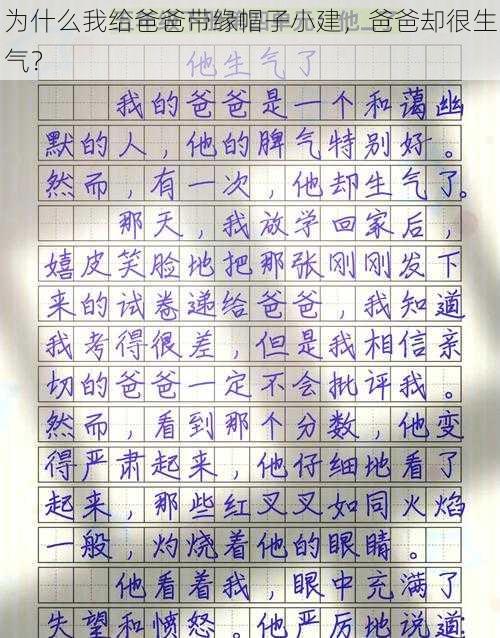 为什么我给爸爸带缘帽子小建，爸爸却很生
气？
他生气了
我的爸爸是一个和蔼幽
默的人，他的脾气特别好。
然而，有一次，他却生气了。
那天，我放学回家后，
嬉皮笑脸地把那张刚刚发下
来的试卷递给爸爸，我知道
我考得很差，但是我相信亲
切的爸爸一定不会批评我。
然而，看到那个分数，他变
得严肃起来，他仔细地看了
起来，那些红叉叉如同火焰
一般，灼烧着他的眼睛。
他看着我，眼中充满了
失望和愤怒。他严厉地说道